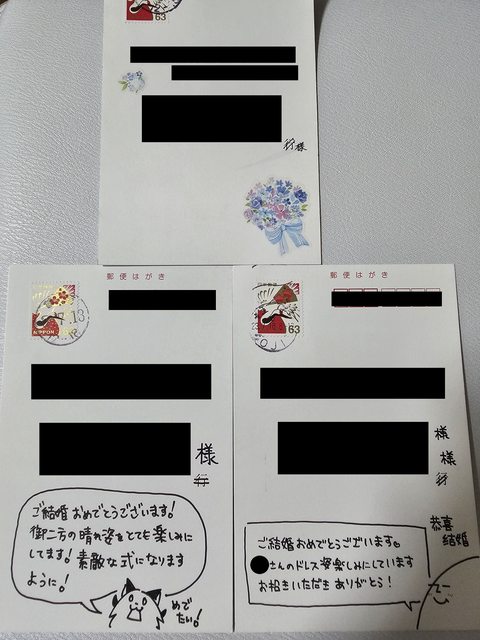 63
行様
郵便はがき
.13
NIPPON
様
行
ご結婚おめでとうございます!
御二方の晴れ姿をとても楽しみに
してます! 素敵な式になります
ように!
めで
たい!
郵便はがき
63
OJI
様
様
行
恭喜
結婚
ご結婚おめでとうございます。
さんのドレス姿楽しみにしています
お招きいただきありがとう!